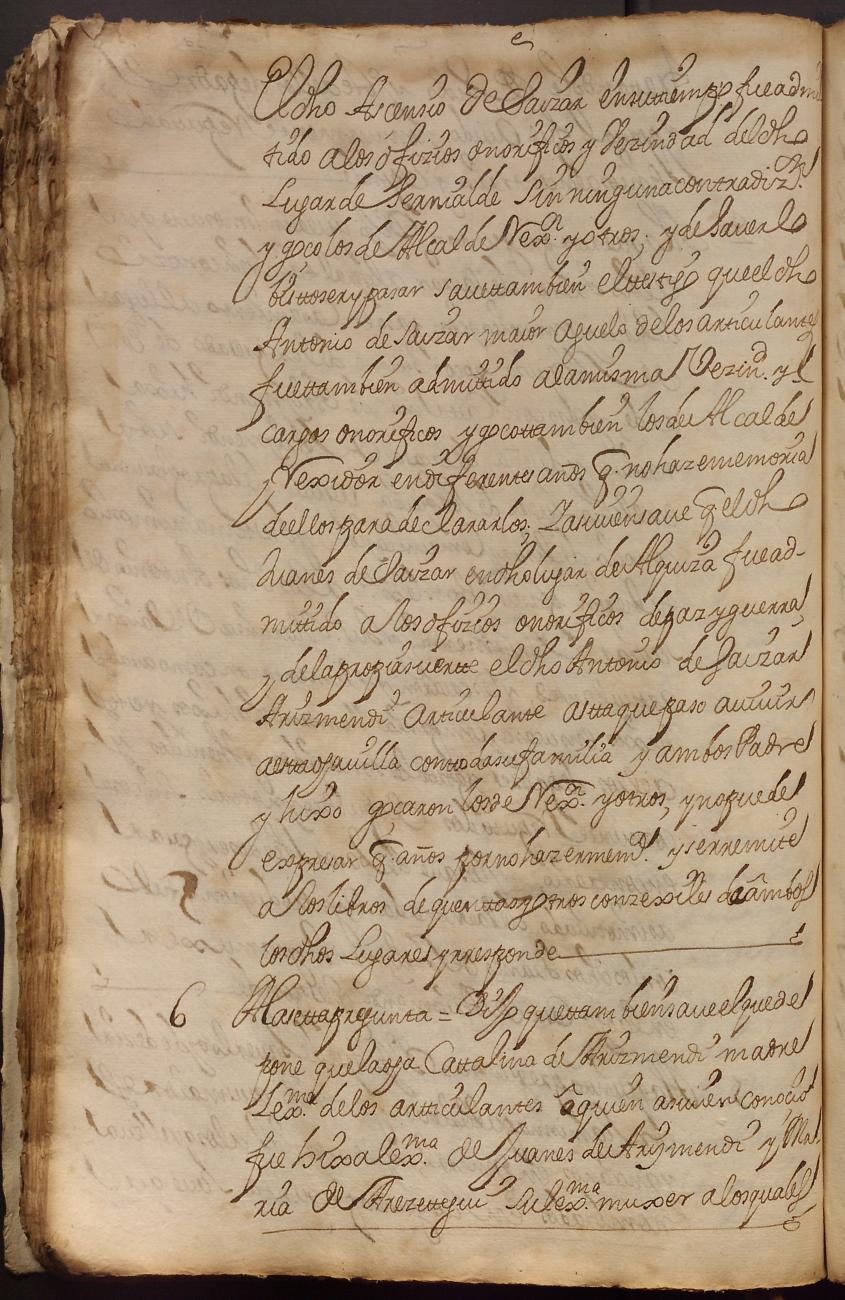 El dho Ascensio de Saizar en su tiempo fue admi
tido a los ofizios onorificos y Vezindad del dho
Lugar de Bernialde sin ninguna contradizn.
y gozo los de Alcalde Rexor. y otros; y de haverlo
visto ser y pasar save tambien el testigo que el dho
Antonio de Saizar maior aguelo de los articulantes
fue tambien admitido a la misma Vezind. y
cargos onorificos y gozo ttambien los de Alcalde
y Rexidor en diferentes años q. no haze memoria
de ellos para declararlos; Y asi vien save q el dho
Juanes de Saizar en dho lugar de Alquiza fue ad-
mittido a los ofizios onorificos de paz y guerra,
y de la propia suerte el dho Antonio de Saizar
Arizmendi articulante asta que paso a vivir
a esta dha villa con toda su familia y ambos Padre
y hixo gozaron los de Rexor. y otros, y no puede
expresar q. años por no hazer memd. y se rremite
a los libros de quentas y otros conzexiles de ambos
los dhos Lugares y responde
6 A la setta pregunta = Dixo que ttambien save el que de
pone que la dha Cattalina de Arizmendi madre
Lexma. de los articulantes a quien asi vien conocio
fue hixa lexma. de Juanes de Arizmendi y Ma
ria de Arezettegui su lexma. muxer a los quales